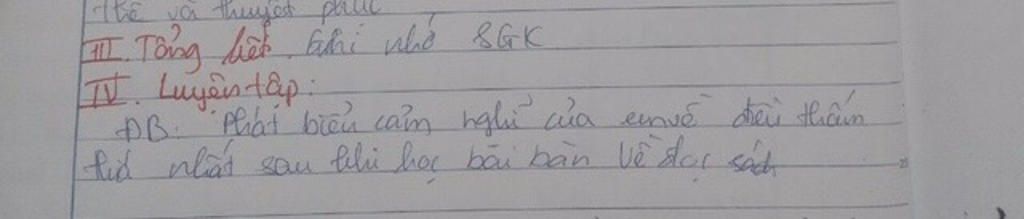 thế và thuyết phục
III. Tổng kết. Ghi nhớ SGK
IV. Luyện tập:
ĐB: Phát biểu cảm nghĩ của em về điều thấm
thía nhất sau khi học bài bàn về đọc sách